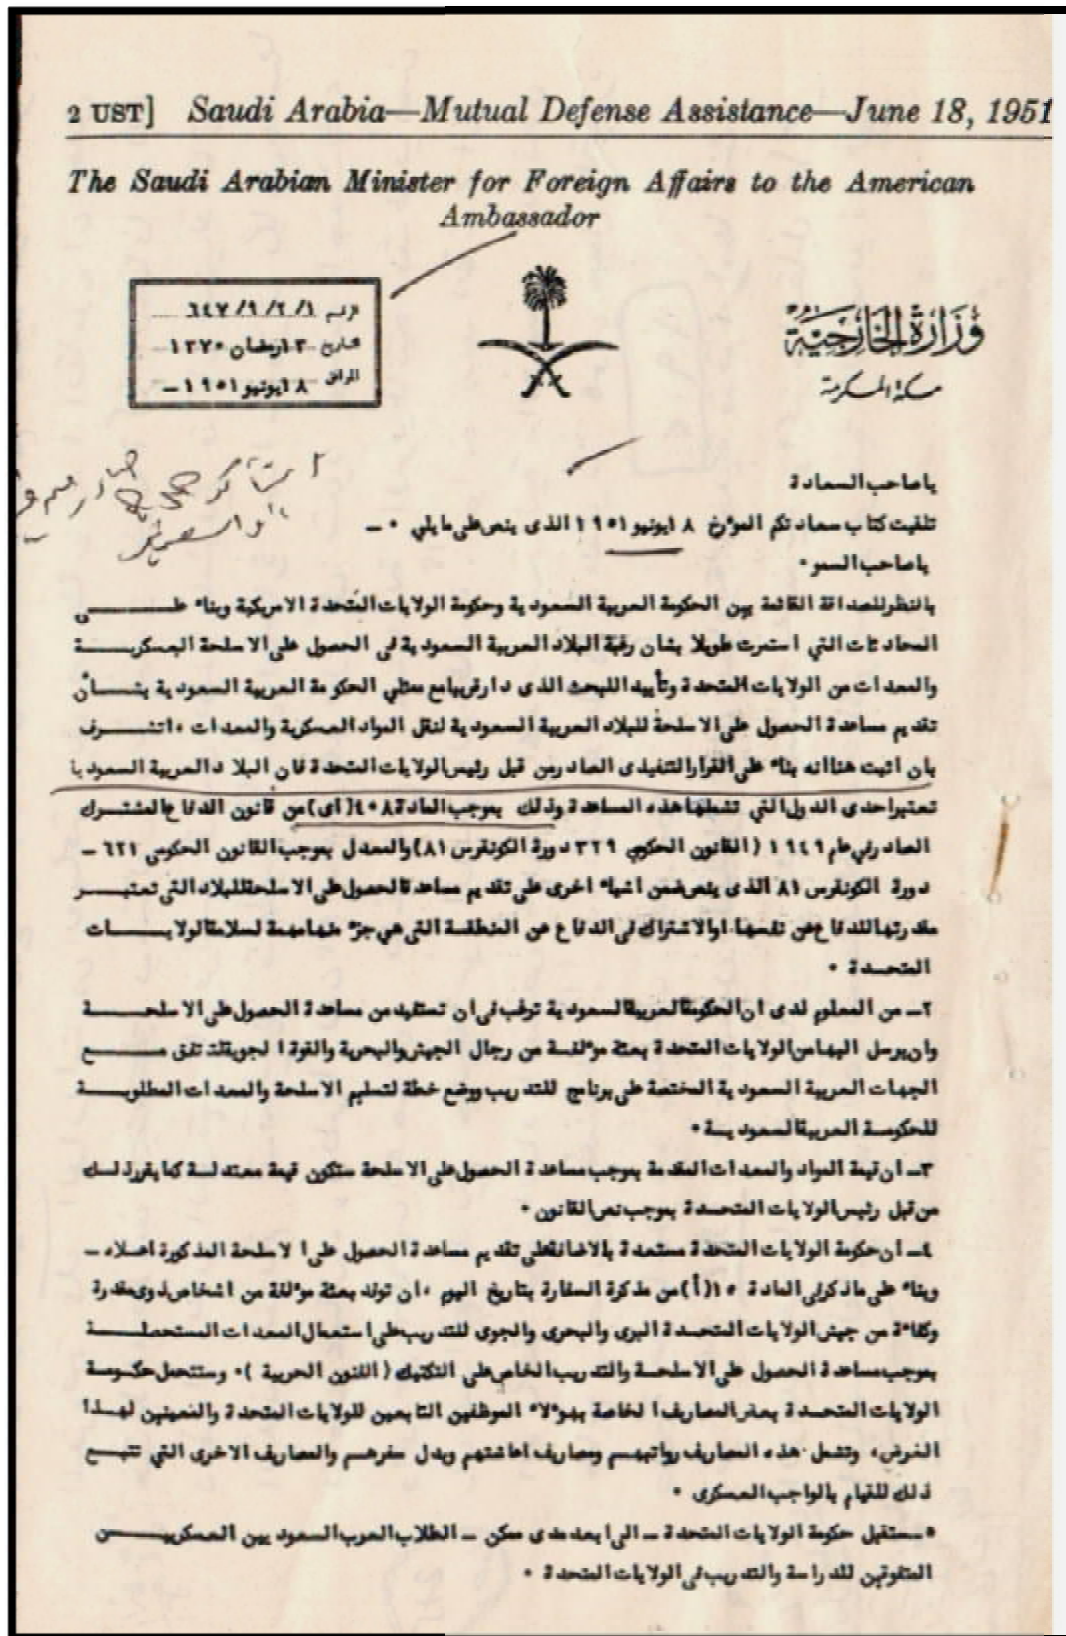 2 UST] Saudi Arabia—Mutual Defense Assistance—June 18, 1951
The Saudi Arabian Minister for Foreign Affairs to the American
Ambassador
وزارة الخارجية
مكة المكرمة
الرقم ٦٤٧/٩/٢/١
تاريخ ١٣ رمضان ١٣٧٠
الموافق ١٨ يونيو ١٩٥١ –
ياصاحب السعادة
تلقيت كتاب سعادتكم المؤرخ ١٨ يونيو ١٩٥١ الذى ينص على مايلي ٠ –
ياصاحب السمو ٠
بالنظر للصداقة القائمة بين الحكومة العربية السعودية وحكومة الولايات المتحدة الامريكية وبناء على
المحادثات التي استمرت طويلا بشان رغبة البلاد العربية السعودية فى الحصول على الاسلحة العسكرية
والمعدات من الولايات المتحدة وتأييد اللبحث الذى دار قريبا مع ممثلي الحكومة العربية السعودية بشأن
تقديم مساعدة الحصول على الاسلحة للبلاد العربية السعودية لنقل المواد العسكرية والمعدات ، اتشرف
بان اثبت هنا انه بناء على القرار التنفيذى الصادر من قبل رئيس الولايات المتحدة فان البلاد العربية السعودية
تعتبر احدى الدول التي تشملها هذه المساعدة وذلك بموجب المادة ٤٠٨ (اى) من قانون الدفاع المشترك
الصادر في عام ١٩٤٩ (القانون الحكومي ٣٢٩ دورة الكونقرس ٨١) والمعدل بموجب القانون الحكومى ٦٢١ –
دورة الكونقرس ٨١ الذى ينص ضمن اشياء اخرى على تقديم مساعدة الحصول على الاسلحة للبلاد التى تعتبر
مقدرتها للدفاع عن نفسها او الاشتراك فى الدفاع عن المنطقة التى هي جزء منها مهمة لسلامة الولايات
المتحدة ٠
٢– من المعلوم لدى ان الحكومة العربية السعودية ترغب فى ان تستفيد من مساعدة الحصول على الاسلحة
وان يرسل اليها من الولايات المتحدة بعثة مؤلفة من رجال الجيش والبحرية والقوة الجوية لتتفق مع
الجهات العربية السعودية المختصة على برنامج للتدريب ووضع خطة لتسليم الاسلحة والمعدات المطلوبة
للحكومة العربية السعودية ٠
٣– ان قيمة المواد والمعدات المقدمة بموجب مساعدة الحصول على الاسلحة ستكون قيمة معتدلة كما يقرر ذلك
من قبل رئيس الولايات المتحدة بموجب نص القانون ٠
٤– ان حكومة الولايات المتحدة مستعدة بالاضافة على تقديم مساعدة الحصول على الاسلحة المذكورة اعلاه –
وبناء على ماذكر فى المادة ١٥ (أ) من مذكرة السفارة بتاريخ اليوم ، ان توفد بعثة مؤلفة من اشخاص ذوى مقدرة
وكفاءة من جيش الولايات المتحدة البرى والبحرى والجوى للتدريب على استعمال المعدات المستحصلة
بموجب مساعدة الحصول على الاسلحة والتدريب الخاص على التكتيك (الفنون الحربية )٠ وستتحمل حكومة
الولايات المتحدة بعض المصاريف الخاصة بهؤلاء الموظفين التابعين للولايات المتحدة والمعينين لهذا
الغرض، وتشمل هذه المصاريف رواتبهم ومصاريف اعاشتهم وبدل سفرهم والمصاريف الاخرى التي تتبع
ذلك للقيام بالواجب العسكرى ٠
٥– ستقبل حكومة الولايات المتحدة – الى ابعد مدى ممكن – الطلاب العرب السعوديين العسكريين
المتفوقين للدراسة والتدريب فى الولايات المتحدة ٠